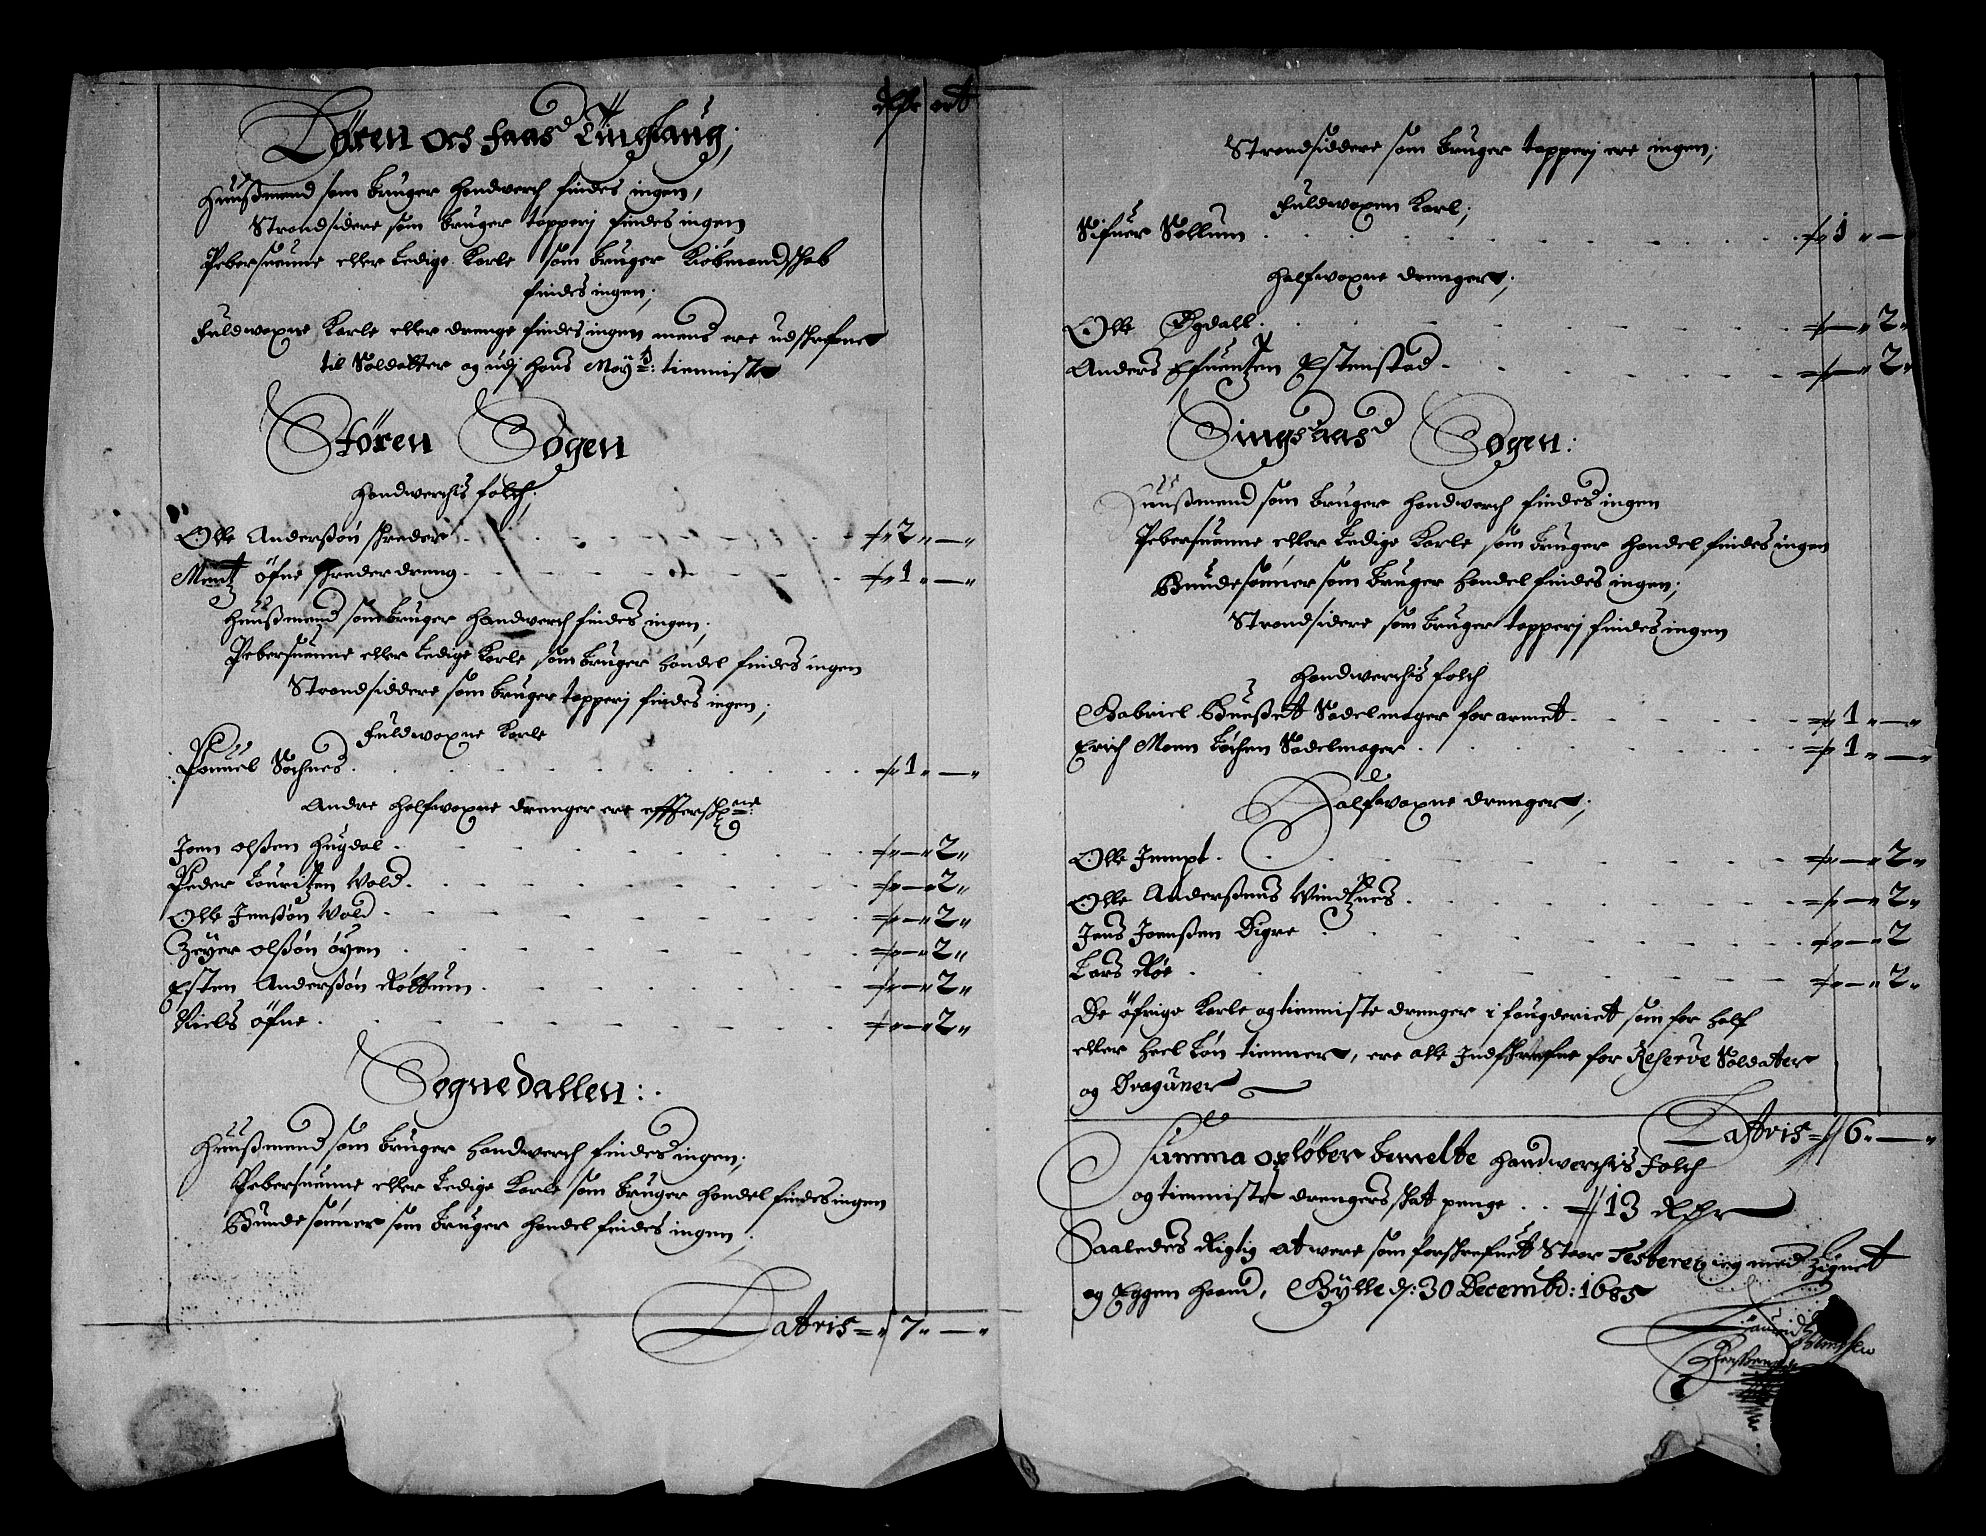 Rdr ort
Støren och Haas Tinglaug;
Huußmend som bruger Handwerch findes ingen,
Strandsidere som bruger tapperj findes ingen
Pebersuenne eller Ledige Karle som bruger Kiøbmandschab
findes ingen;
Fuldwoxne Karle eller drenge findes ingen mens ere udschrefne
til Soldatter og udj Hans Mayts: tienniste
Støren Sogen
Handwerchs folch;
Olle Anderßøn schreder 2 —
Mentz Øfne schreder dreng 1 —
Huußmend som bruger Handwerch findes ingen;
Pebersuenne eller Ledige Karle som bruger Handel findes ingen
Strandsiddere som bruger tapperj findes ingen;
Fuldwoxne Karle
Pouuel Sochnes 1 —
Andre Halfwoxne drenger ere effterschne:
Joen olßen Hugdal — 2
Peder Louritzen Vold — 2
Olle Jenßøn Vold — 2
Zeyer olßøn øyen — 2
Esten Anderßøn Røttum — 2
Niels Øfne — 2
Sognedallen:
Huußmend som bruger Handwerch findes ingen;
Pebersuenne eller Ledige Karle som bruger Handel findes ingen
Bunde sønner som bruger Handel findes ingen;
Latris 7 —
Strandsiddere som bruger tapperj ere ingen;
Fuldwoxen Karl;
Sifuer Sollum 1 —
Halfwoxne drenger;
Olle Øgdall — 2
Anders Efuentzen Østenstad — 2
Singsaas Sogen:
Huußmend som bruger Handwerch findes ingen
Pebersuenne eller Ledige Karle som bruger Handel findes ingen
Bunde sønner som bruger Handel findes ingen;
Strandsidere som bruger tapperj findes ingen
Handwerchs folch
Gabriel Sadelmager for armet 1 —
Erich Moen Løchen Sadelmager 1 —
Halfwoxne drenger;
Olle Jempt — 2
Olle Anderßens Vindtznes — 2
Jens Joenßen Digre — 2
Lars Røe — 2
De øfrige Karle og tienniste drenger i fougderiet som for half
eller heel Løn tienner, ere alle Indschrefne for Reserve Soldater
og Draguner
Latris 6 —
Summa opløber bemelte Handwerchs folch
og tienniste drengers skat penge 13 Rdr
Saaledes Rigtig at were som forschrefuet Staar Testerer ieg med Zignet
og Eggen Haand, Bylle d: 30 Decembr: 1685